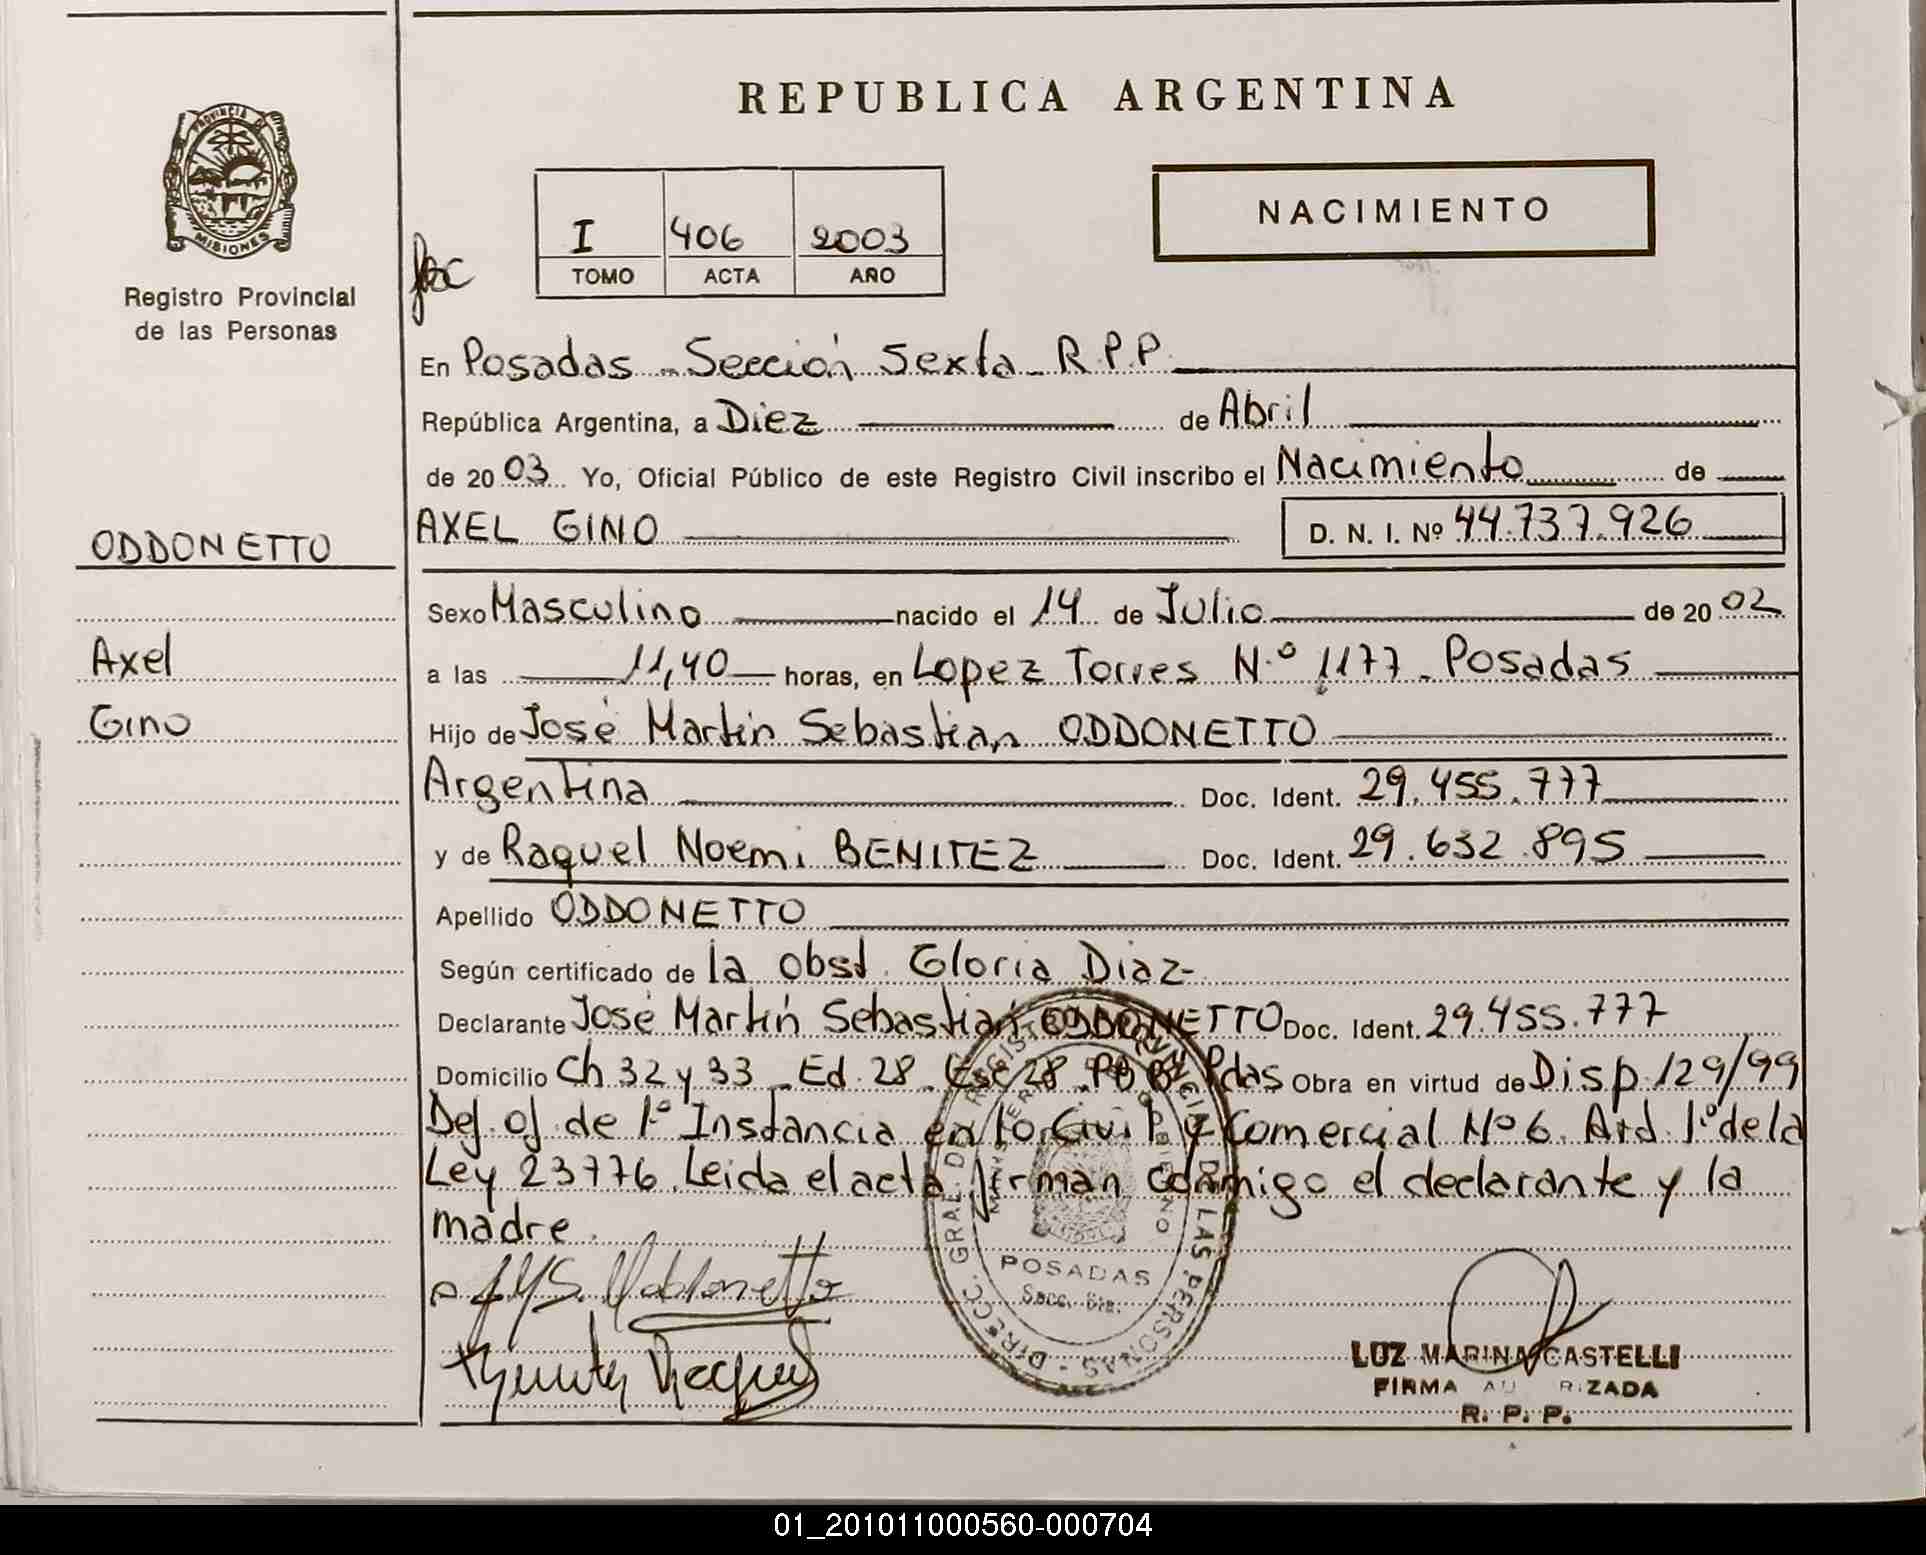 REPUBLICA ARGENTINA
PROVINCIA DE
MISIONES
Registro Provincial
de las Personas
NACIMIENTO
I 406 2003
TOMO ACTA AÑO
En Posadas - Sección Sexta - R.P.P.
República Argentina, a Diez de Abril
de 20 03 Yo, Oficial Público de este Registro Civil inscribo el Nacimiento de
AXEL GINO D. N. I. Nº 44.737.926
ODDONETTO
Axel
Gino
Sexo Masculino nacido el 14 de Julio de 20 02
a las 11,40 horas, en Lopez Torres N.º 1177 - Posadas
Hijo de José Martín Sebastian ODDONETTO
Argentina Doc. Ident. 29.455.777
y de Raquel Noemi BENITEZ Doc. Ident. 29.632.895
Apellido ODDONETTO
Según certificado de la obst. Gloria Diaz-
Declarante José Martín Sebastian ODDONETTO Doc. Ident. 29.455.777
Domicilio Ch 32 y 33 - Ed. 28 - Esc 28 - PB Pdas Obra en virtud de Disp. 129/99
Def. of. de 1º Instancia en lo Civil y Comercial Nº 6. Art. 1º de la
Ley 23776. Leida el acta firman conmigo el declarante y la
madre.
DIRECC. GRAL. DEL REGISTRO PROVINCIAL DE LAS PERSONAS
POSADAS
Secc. 6ta.
LUZ MARINA CASTELLI
FIRMA AU RIZADA
R. P. P.
01_201011000560-000704